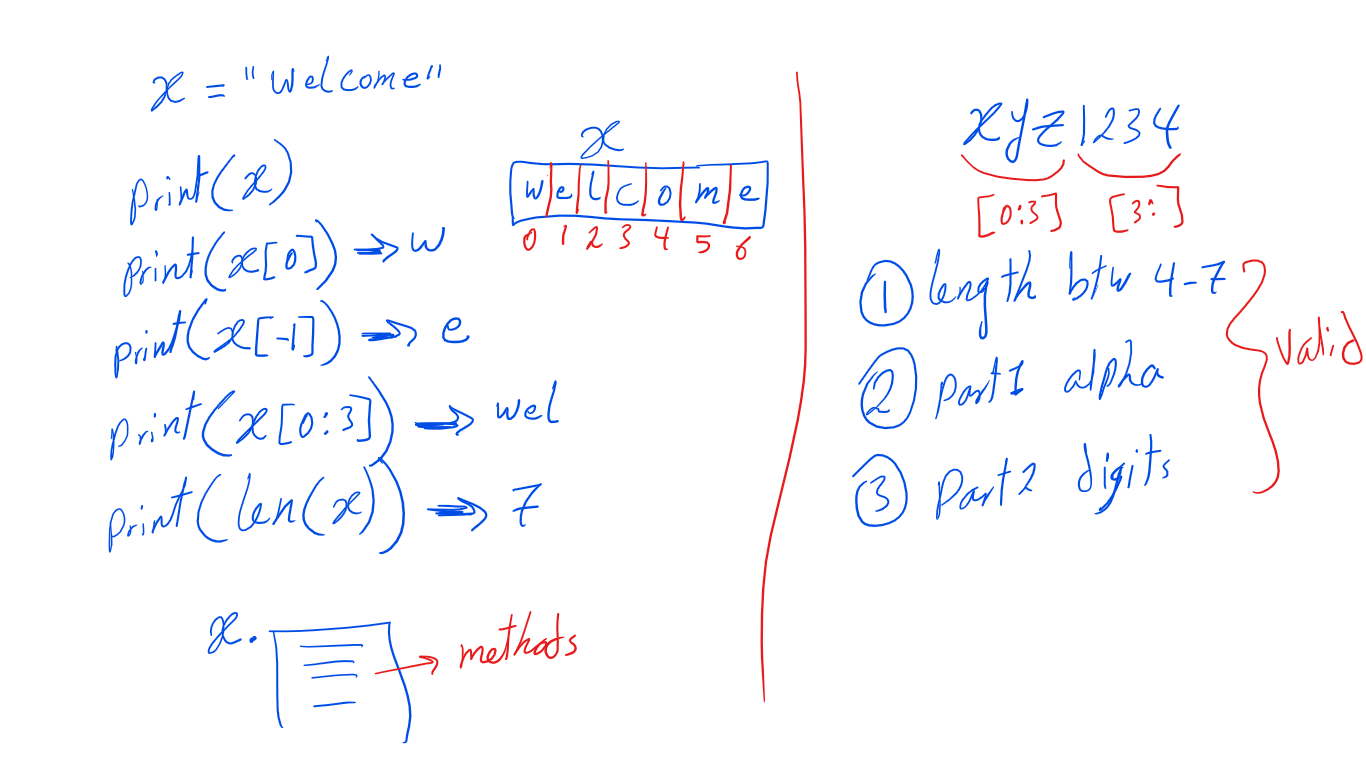 x = "welcome"
print(x)
print(x[0]) → w
print(x[-1]) → e
print(x[0:3]) → wel
print(len(x)) → 7
x
w e l c o m e
0 1 2 3 4 5 6
x.
→ methods
xyz1234
[0:3] [3:]
① length btw 4-7
② part1 alpha
③ part2 digits
valid